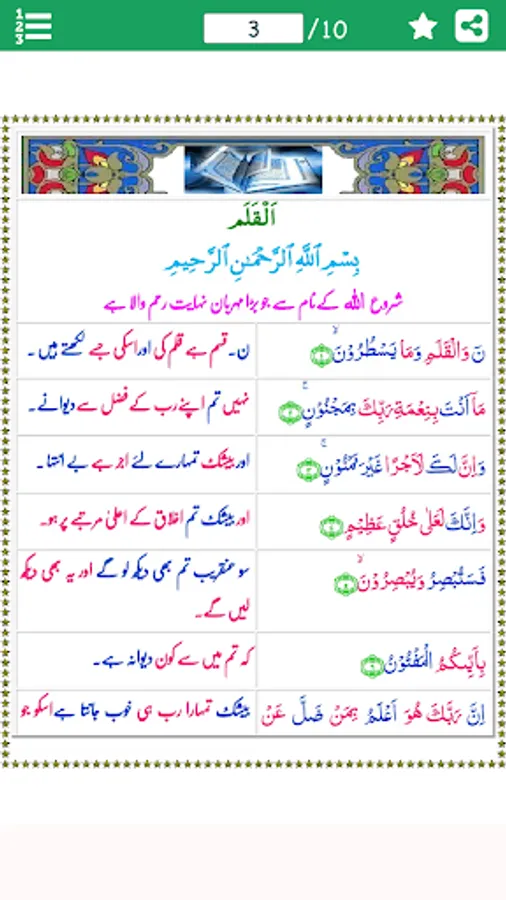 1
2
3
3 /10
اَلْقَلَم
بِسْمِ ٱللَّهِ ٱلرَّحْمَـٰنِ ٱلرَّحِيمِ
شروع اللہ کے نام سے جو بڑا مہربان نہایت رحم والا ہے
نٓ وَالْقَلَمِ وَمَا يَسْطُرُوْنَۙ ﴿۱﴾
ن۔ قسم ہے قلم کی اور اسکی جسے لکھتے ہیں ۔
مَاۤ اَنْتَ بِنِعْمَةِ رَبِّكَ بِمَجْنُوْنٍۚ ﴿۲﴾
نہیں تم اپنے رب کے فضل سے دیوانے ۔
وَاِنَّ لَكَ لَاَجْرًا غَيْرَ مَمْنُوْنٍۚ ﴿۳﴾
اور بیشک تمہارے لئے اجر ہے بے انتہا ۔
وَاِنَّكَ لَعَلٰى خُلُقٍ عَظِيْمٍ ﴿۴﴾
اور بیشک تم اخلاق کے اعلیٰ مرتبے پر ہو۔
فَسَتُبْصِرُ وَيُبْصِرُوْنَۙ ﴿۵﴾
سو عنقریب تم بھی دیکھ لو گے اور یہ بھی دیکھ
لیں گے۔
بِاَيِّٮكُمُ الْمَفْتُوْنُ ﴿۶﴾
کہ تم میں سے کون دیوانہ ہے ۔
اِنَّ رَبَّكَ هُوَ اَعْلَمُ بِمَنْ ضَلَّ عَنْ
بیشک تمہارا رب ہی خوب جانتا ہے اسکو جو